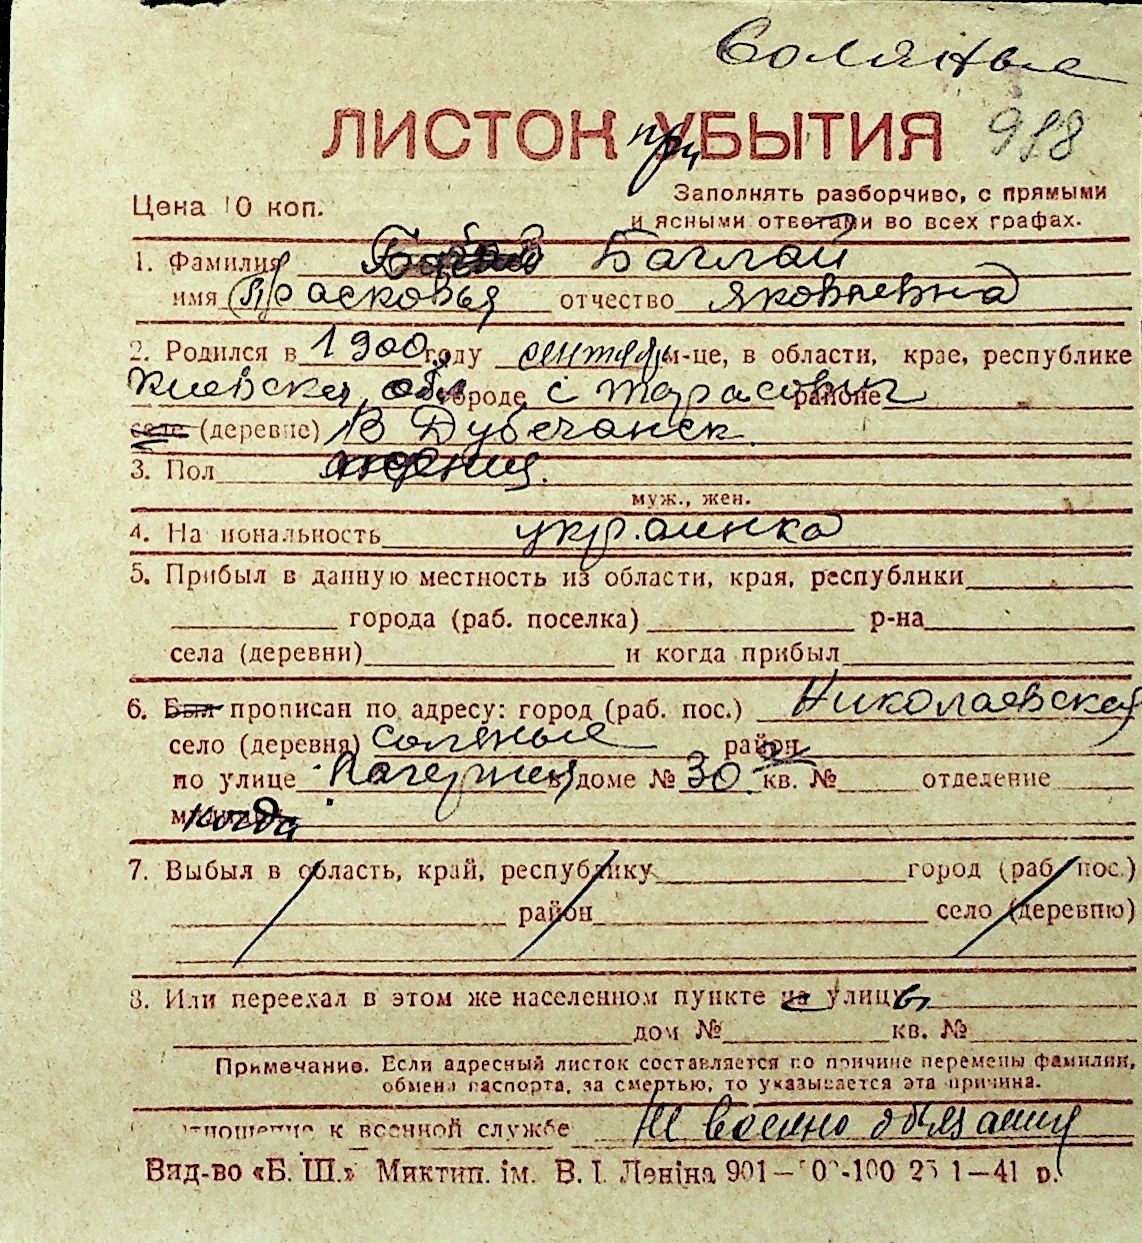 Соляные
ЛИСТОК прУБЫТИЯ 998
Цена 10 коп.
Заполнять разборчиво, с прямыми
и ясными ответами во всех графах.
1. Фамилия Баглай
имя Прасковья отчество Яковлевна
2. Родился в 1900 году сентябр м-це, в области, крае, республике
Киевская обл городе с Тарасовка районе
село (деревне) В Дубечанск
3. Пол
муж., жен.
4. Национальность украинка
5. Прибыл в данную местность из области, края, республики
города (раб. поселка) р-на
села (деревни) и когда прибыл
6. Был прописан по адресу: город (раб. пос.) Николаевская
село (деревня) соляные район
по улице в доме № 30 кв. № отделение
когда
7. Выбыл в область, край, республику город (раб. пос.)
район село (деревню)
8. Или переехал в этом же населенном пункте на улицу
дом № кв. №
Примечание. Если адресный листок составляется по причине перемены фамилии,
обмена паспорта, за смертью, то указывается эта причина.
отношение к военной службе Не военно обязанная
Вид-во «Б. Ш.» Миктип. ім. В. І. Леніна 901— 0-100 25 1—41 р.